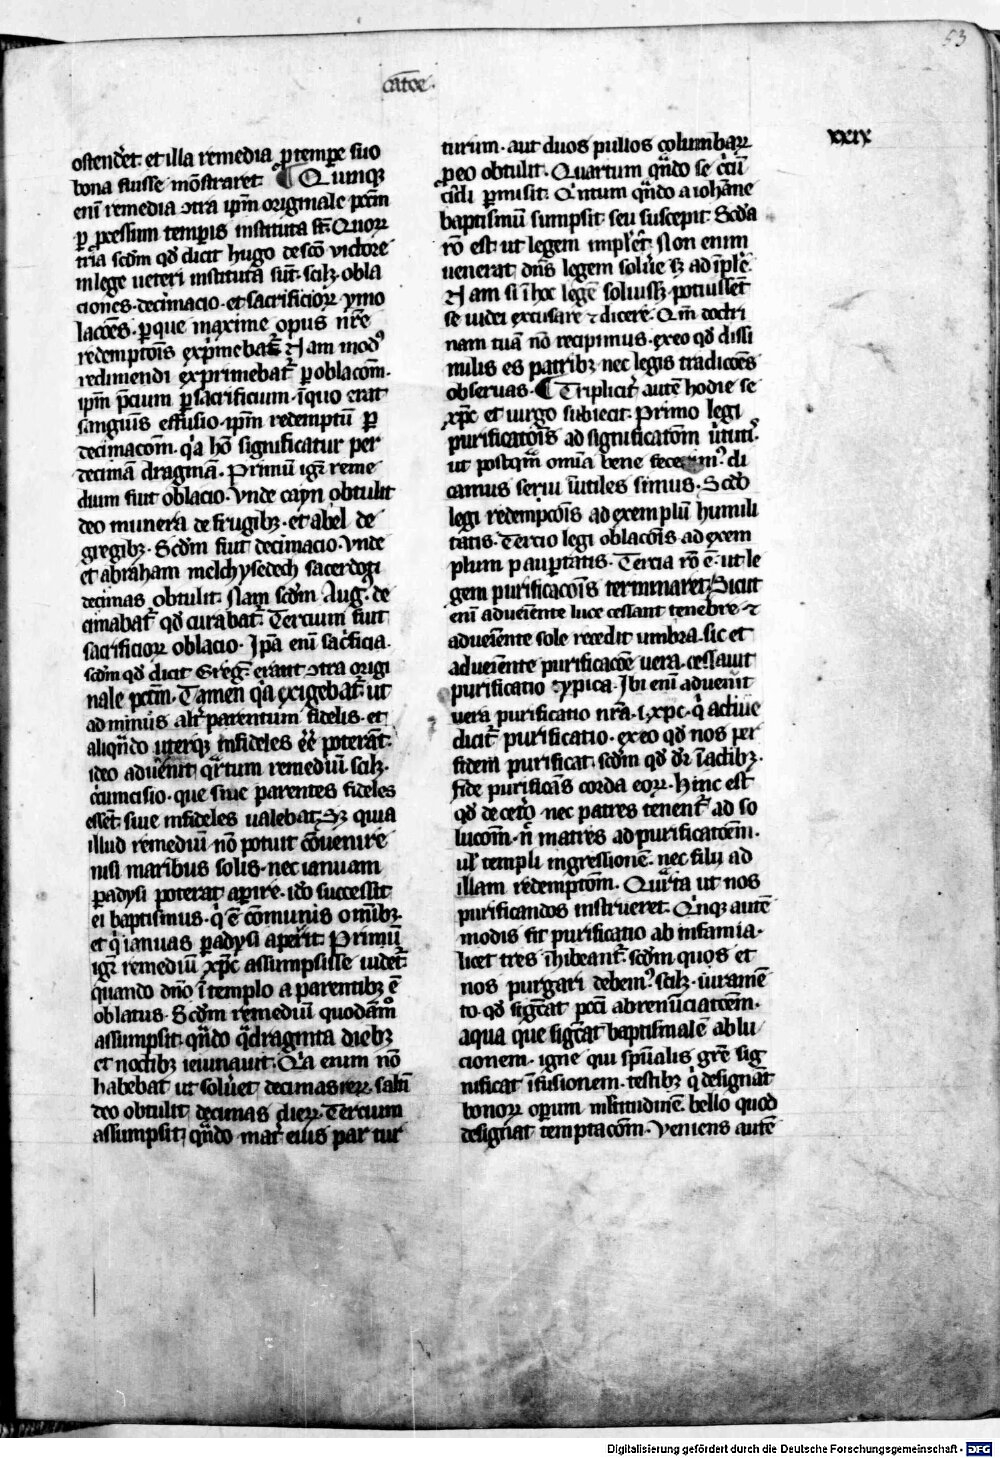 53
catõe.
xxix
ostenderet. et illa remedia ꝓ tempe suo
bona fuisse mõstraret. ¶ Quinqꝫ
eni remedia ꝯtra ipm originale pctm
ꝑ ꝓcessum temꝑis instituta st̃. Quoꝝ
tria scdm qđ dicit hugo de sco victore
in lege ueteri instituta sunt. scilꝫ. obla
ciones. decimacio. et sacrificioꝝ ymo
lacões. ꝑ que maxime opus nr̃e
redemptõis exprimebat̃. Nam modꝰ
redimendi exprimebat̃ ꝑ oblacõm.
ipm p̃cium ꝑ sacrificium. ĩ quo erat
sanguĩs effusio. ipm redemptũ ꝑ
decimacõm. q̃a hõ significatur per
decimã dragmã. Primũ igr̃ reme
dium fuit oblacio. Vnde cayn obtulit
deo munera de frugibꝫ. et abel de
gregibꝫ. Scdm fuit decimacio. Vnde
et abraham melchysedech sacerdoti
decimas obtulit. Nam scdm Aug. de
cimabat̃ qđ curabat̃. Tercium fuit
sacrificioꝝ oblacio. Ipã eni sacrificia.
scdm qđ dicit Greg. erant ꝯtra origi
nale pctm. Tamen q̃a exigebat̃ ut
ad minus alt̃ parentum fidelis. et
aliqñdo uterqꝫ infideles eẽ poterãt.
ideo aduenit quartum remediũ scilꝫ.
circumcisio. que siue parentes fideles
essẽt. siue infideles ualebat. Sꝫ quia
illud remediũ nõ potuit cõuenire
nisi maribus solis. nec ianuam
ꝑadysi poterat aꝑire. ido successit
ei baptismus. q̃ ẽ cõmunis omĩbꝫ.
et q̃ ianuas ꝑadysi aperit. Primũ
igr̃ remediũ xp̃c assumpsisse uidet̃.
quando dño ĩ templo a parentibꝫ ẽ
oblatus. Scdm remediũ quodãmo
assumpsit. qñdo q̃draginta diebꝫ
et noctibꝫ ieiunauit. Q̃a enim nõ
habebat ut solueret decimas reꝝ. saltĩ
deo obtulit decimas dieꝝ. Tercium
assumpsit. qñdo mat̃ eius par tur
turum. aut duos pullos columbaꝝ
ꝓ eo obtulit. Quartum qñdo se circũ
cidi ꝑmisit. Quintum qñdo a iohãne
baptismũ sumpsit. seu suscepit. Scđa
rõ est. ut legem impleret. Non enim
uenerat dñs legem soluere sꝫ adĩplẽ.
Nam si ĩ hoc legẽ soluissꝫ. potuissẽt
se iudei excusare ⁊ dicere. Qm̃ doctri
nam tuã nõ recipimus. ex eo qđ dissi
milis es patribꝫ nec legis tradicões
obseruas. ¶ Tripliciter autẽ hodie se
xp̃c et uirgo subiecit. Primo legi
purificatõis ad significatõm uirtutiꝰ.
ut postqm omĩa bene fecerimꝰ. di
camus serui ĩutiles simus. Scdo
legi redempcõis ad exemplũ humili
tatis. Tercio legi oblacõis ad exem
plum pauꝑtatis. Tercia rõ ẽ. ut le
gem purificacõis terminaret. Sicut
eni adueiẽnte luce cessant tenebre. ⁊
adueiẽnte sole recedit umbra. sic et
adueiẽnte purificacõe uera. cessauit
purificatio typica. Ibi eni aduenit
uera purificatio nr̃a. i. xp̃c. q̃ actiue
dicit̃ purificatio. ex eo qđ nos per
fidem purificat. scdm qđ dr̃ ĩ actibꝫ.
fide purificãs corda eoꝝ. Hinc est
qđ de cetero nec patres tenent̃ ad so
lucõm. ñ matres ad purificatõem.
ul̃ templi ingressionẽ. nec filij ad
illam redemptõm. Quarta ut nos
purificandos instrueret. Quinqꝫ autẽ
modis fit purificatio ab infamia.
licet tres ĩhibeant̃. scdm quos et
nos purgari debemꝰ. scilꝫ. iuramẽ
to. qđ sigcat pcci abrenũciatõem.
aqua que sigcat baptismalẽ ablu
cionem. igne qui spũalis grẽ sig
nificat ĩfusionem. testibꝫ q̃ designãt
bonoꝝ oꝑum multitudinẽ. bello quod
designat temptacõm. Veniens autẽ
Digitalisierung gefördert durch die Deutsche Forschungsgemeinschaft - DFG